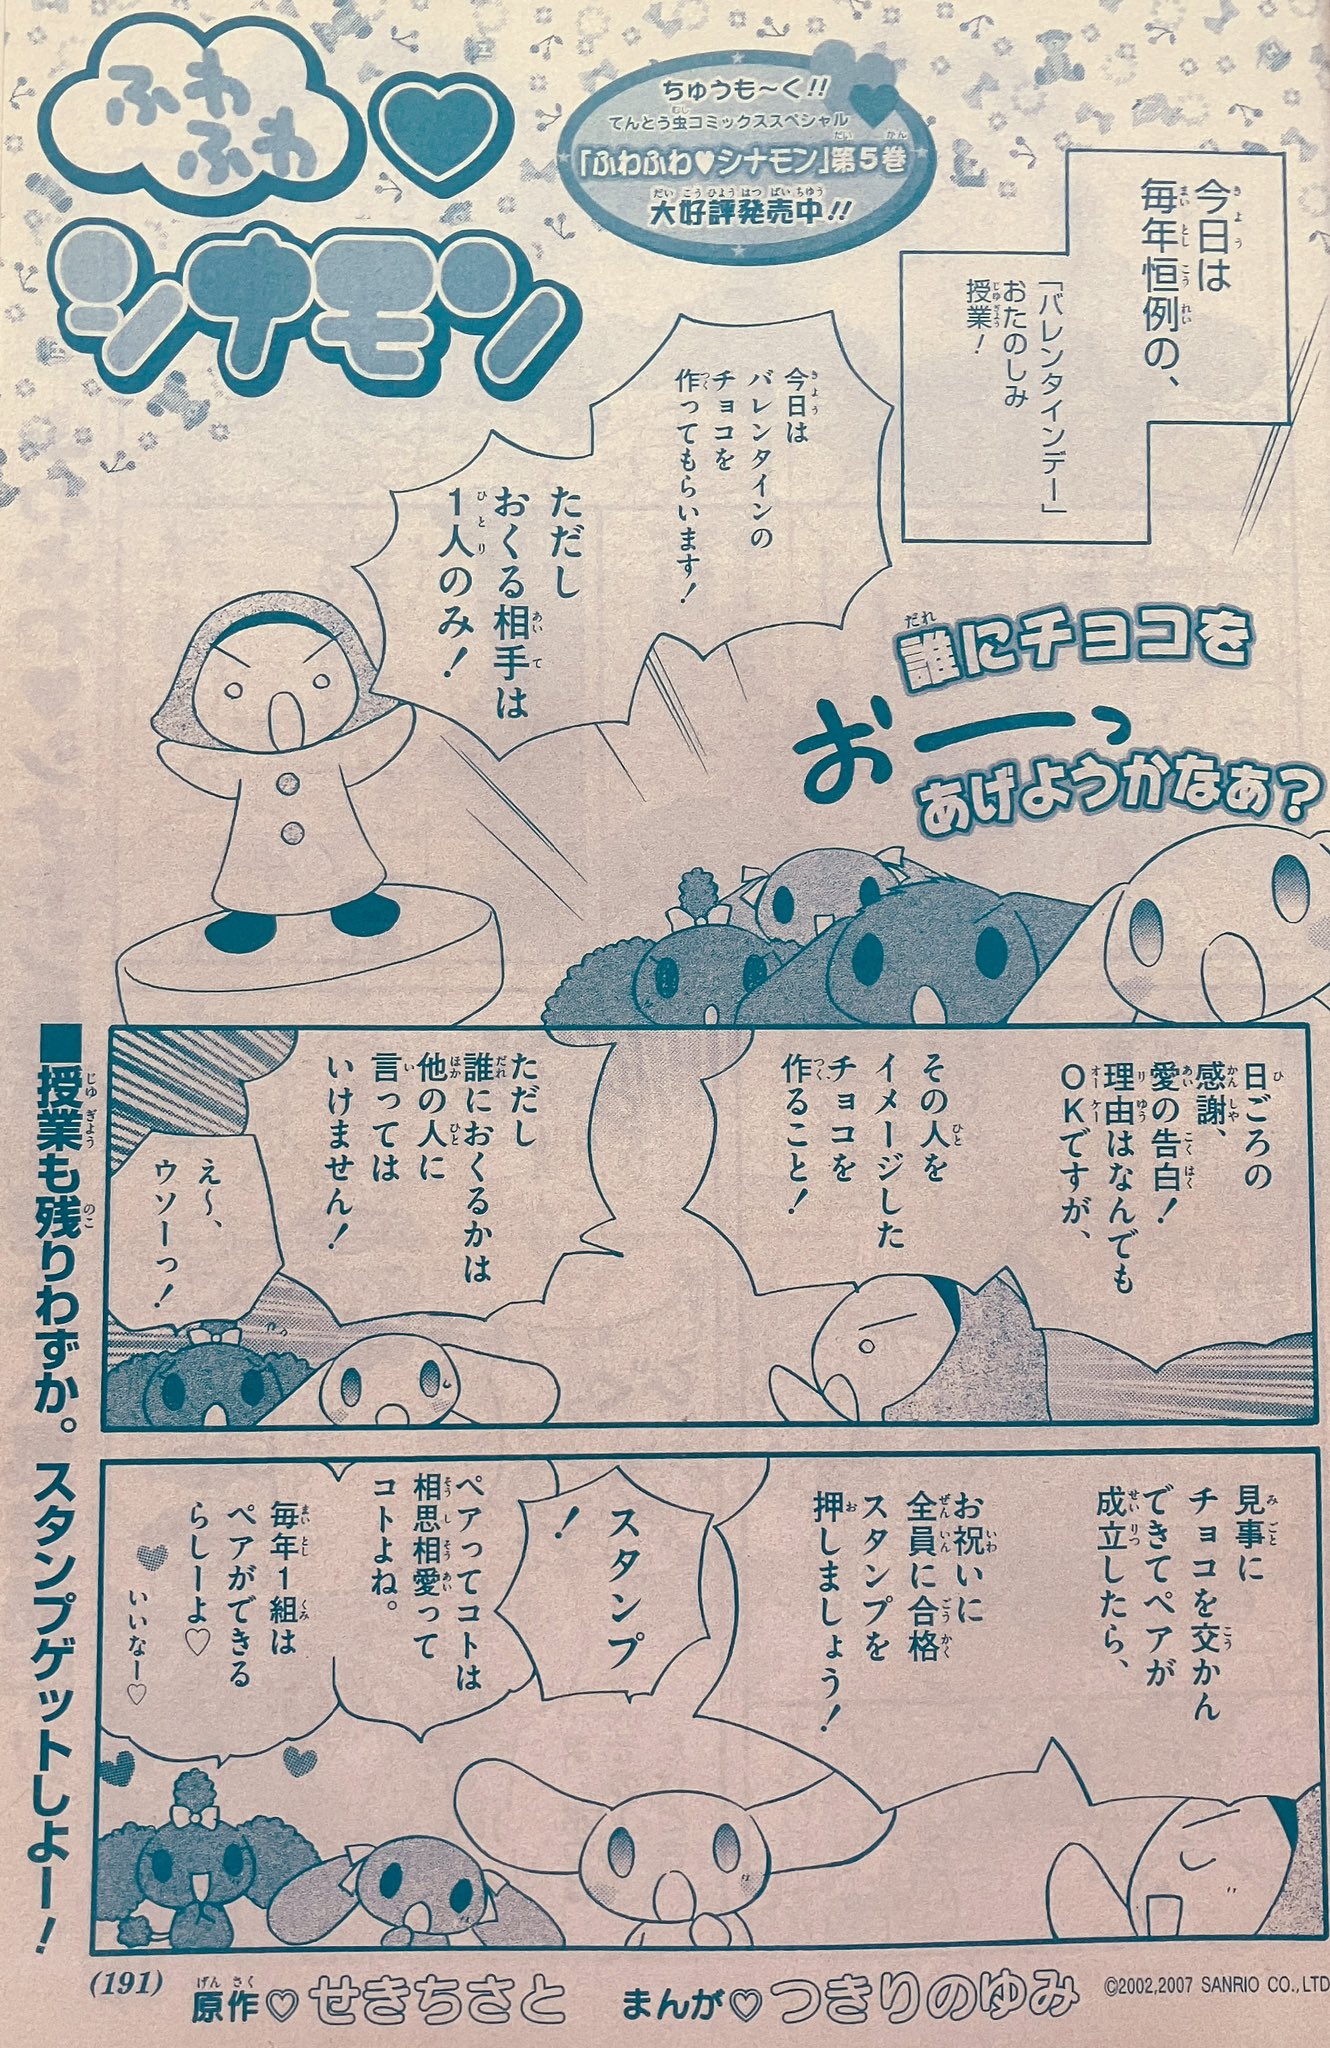 ふわ
ふわ
♥
シナモン
ちゅうも〜く!!
てんとう虫コミックススペシャル
「ふわふわ♥シナモン」第5巻
大好評発売中!!
今日は
毎年恒例の、
「バレンタインデー」
おたのしみ
授業!
今日は
バレンタインの
チョコを
作ってもらいます!
ただし
おくる相手は
1人のみ!
誰にチョコを
あげようかなぁ?
おーっ
日ごろの
感謝、
愛の告白!
理由はなんでも
OKですが、
その人を
イメージした
チョコを
作ること!
ただし
誰におくるかは
他の人に
言っては
いけません!
え〜、
ウソーっ!
見事に
チョコを交かん
できてペアが
成立したら、
お祝いに
全員に合格
スタンプを
押しましょう!
スタンプ
!
ペアってコトは
相思相愛って
コトよね。
毎年1組は
ペアができる
らしーよ♡
いいなー♡
■授業も残りわずか。スタンプゲットしよー!
(191)
原作♡せきちさと
まんが♡つきりのゆみ
©2002,2007 SANRIO CO.,LTD